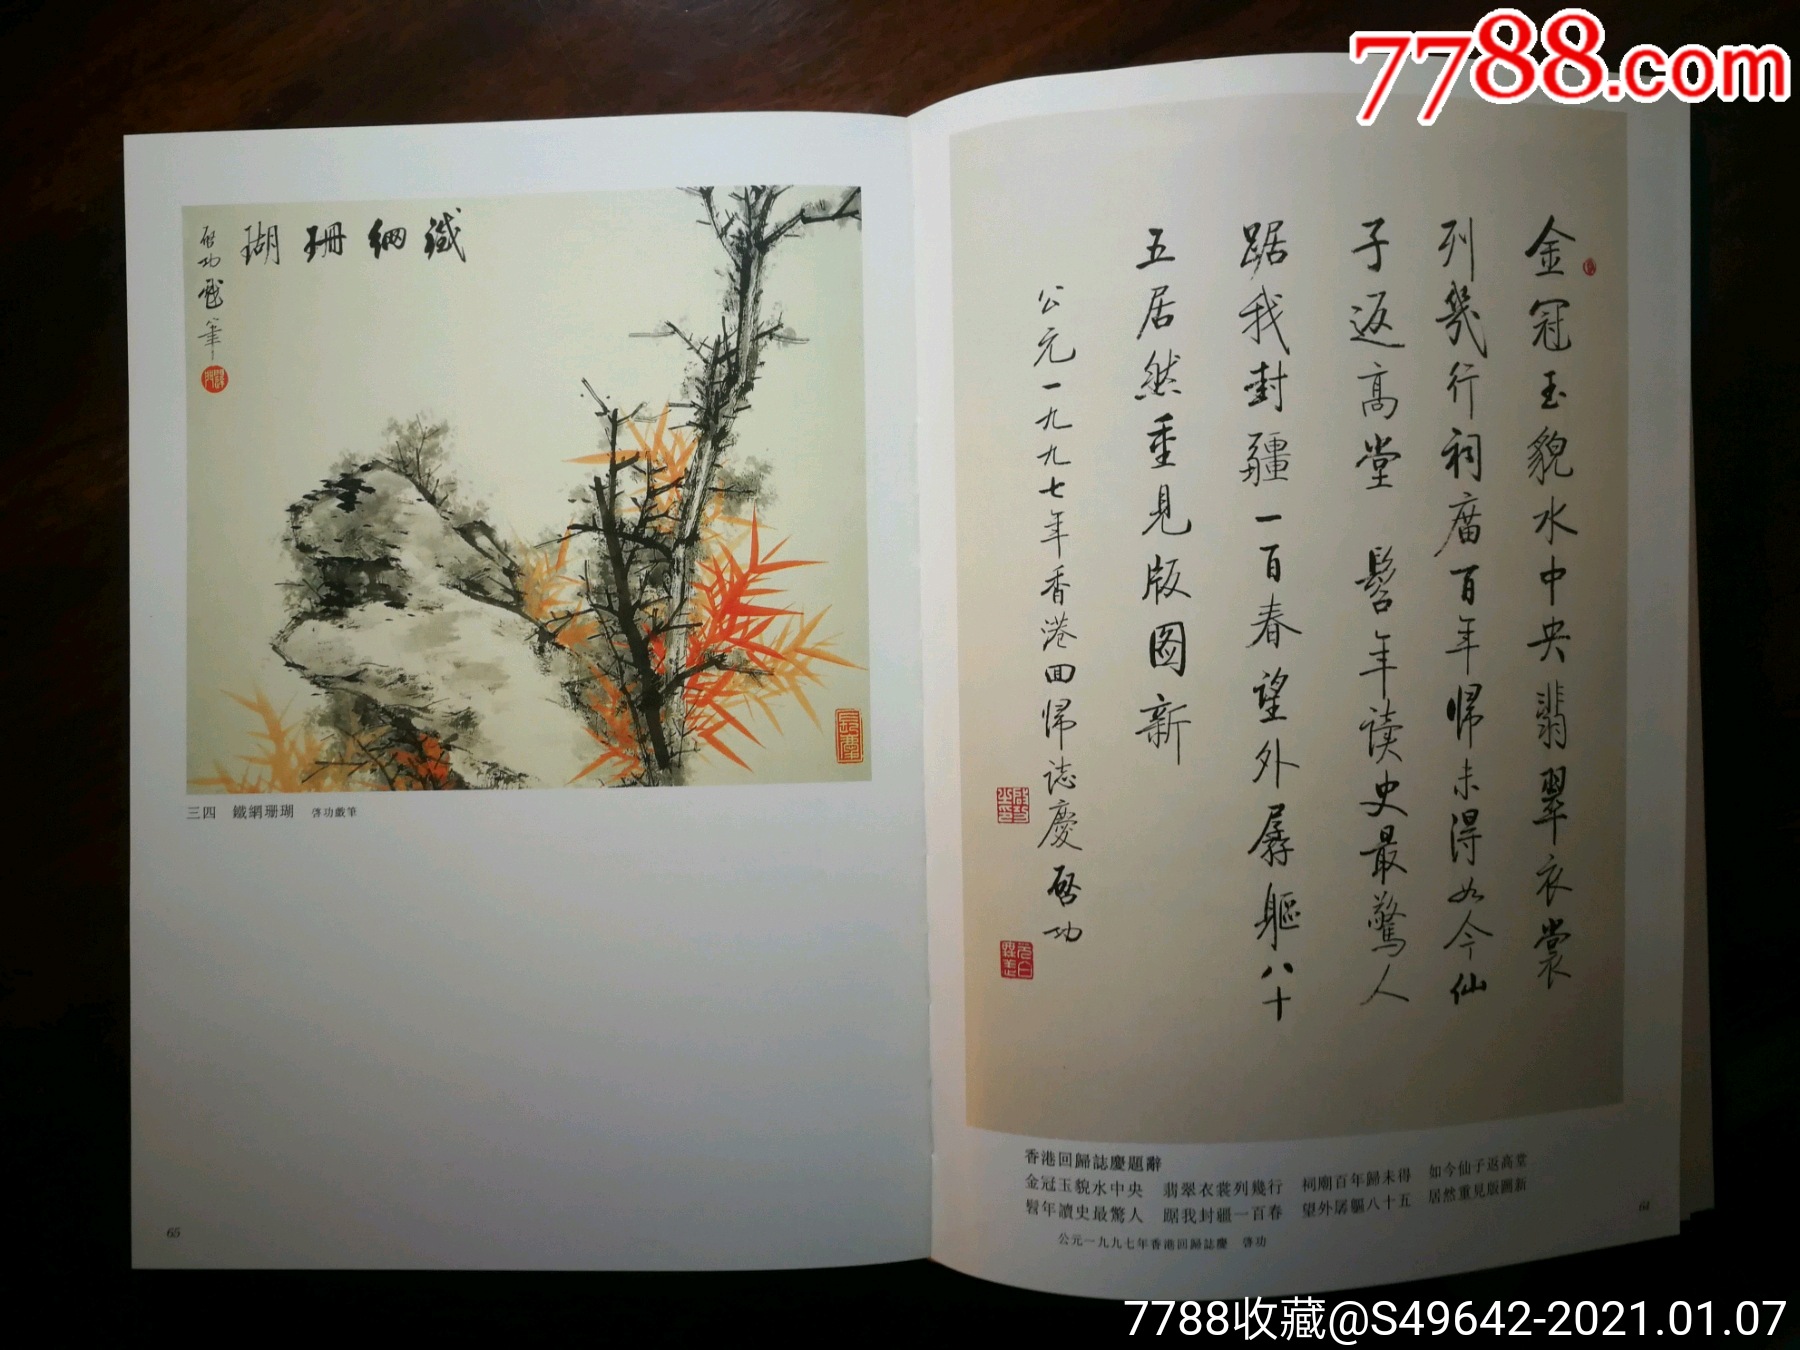 7788.com
鐵網珊瑚
啓功戲筆
三四　鐵網珊瑚　啓功戲筆
65
金冠玉貌水中央翡翠衣裳
列幾行祠庿百年歸未得如今仙
子返高堂　髫年读史最驚人
踞我封疆一百春望外孱軀八十
五居然重見版图新
公元一九九七年香港回歸誌慶啓功
香港回歸誌慶題辭
金冠玉貌水中央　翡翠衣裳列幾行　祠廟百年歸未得　如今仙子返高堂
髫年讀史最驚人　踞我封疆一百春　望外孱軀八十五　居然重見版圖新
公元一九九七年香港回歸誌慶　啓功
7788收藏@S49642-2021.01.07